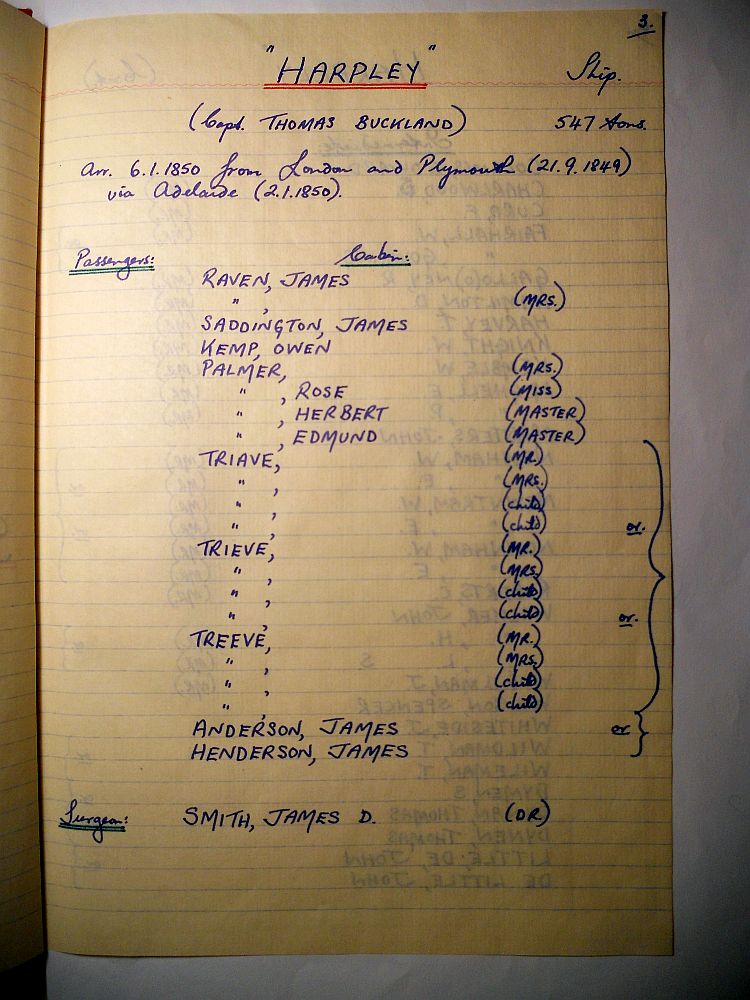 3.
"HARPLEY" Ship.
(Capt. THOMAS BUCKLAND) 547 tons.
Arr. 6.1.1850 from London and Plymouth (21.9.1849)
via Adelaide (2.1.1850).
Passengers: Cabin:
RAVEN, JAMES
" , (MRS.)
SADDINGTON, JAMES
KEMP, OWEN
PALMER, (MRS.)
" , ROSE (MISS)
" , HERBERT (MASTER)
" , EDMUND (MASTER)
TRIAVE, (MR.)
" , (MRS.)
" , (child)
" , (child) or.
TRIEVE, (MR.)
" , (MRS.)
" , (child)
" , (child) or.
TREEVE, (MR.)
" , (MRS.)
" , (child)
" , (child)
ANDERSON, JAMES or
HENDERSON, JAMES
Surgeon: SMITH, JAMES D. (DR.)